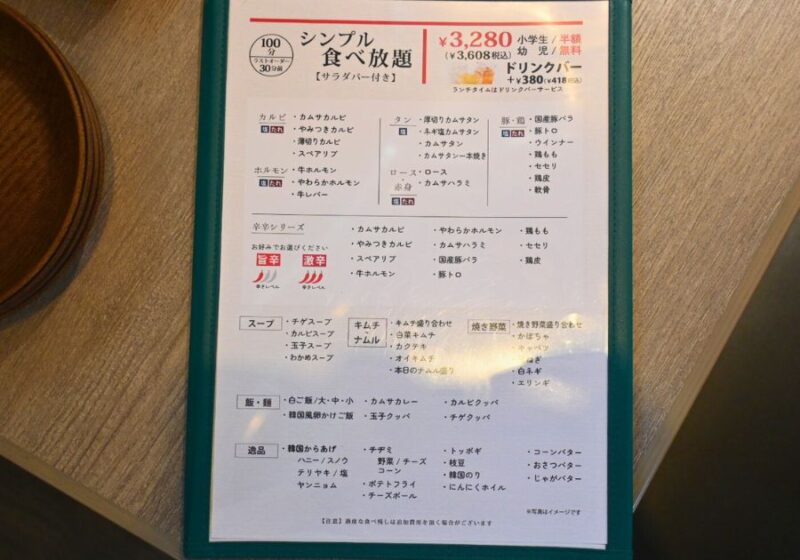 100分
ラストオーダー
30分前
シンプル
食べ放題
【サラダバー付き】
¥3,280
(¥3,608税込)
小学生/半額
幼 児/無料
ドリンクバー
+¥380(¥418税込)
ランチタイムはドリンクバーサービス
カルビ
塩 たれ
・カムサカルビ
・やみつきカルビ
・薄切りカルビ
・スペアリブ
ホルモン
塩 たれ
・牛ホルモン
・やわらかホルモン
・牛レバー
タン
塩
・厚切りカムサタン
・ネギ塩カムサタン
・カムサタン
・カムサタン一本焼き
ロース・赤身
塩 たれ
・ロース
・カムサハラミ
豚・鶏
塩 たれ
・国産豚バラ
・豚トロ
・ウインナー
・鶏もも
・セセリ
・鶏皮
・軟骨
辛辛シリーズ
お好みでお選びください
旨辛 激辛
辛さレベル 辛さレベル
・カムサカルビ
・やみつきカルビ
・スペアリブ
・牛ホルモン
・やわらかホルモン
・カムサハラミ
・国産豚バラ
・豚トロ
・鶏もも
・セセリ
・鶏皮
スープ
・チゲスープ
・カルビスープ
・玉子スープ
・わかめスープ
キムチ・ナムル
・キムチ盛り合わせ
・白菜キムチ
・カクテキ
・オイキムチ
・本日のナムル盛り
焼き野菜
・焼き野菜盛り合わせ
・かぼちゃ
・キャベツ
・白ネギ
・エリンギ
飯・麺
・白ご飯/大・中・小
・韓国風卵かけご飯
・カムサカレー
・玉子クッパ
・カルビクッパ
・チゲクッパ
逸品
・韓国からあげ
ハニー/スノウ
テリヤキ/塩
ヤンニョム
・チヂミ
野菜/チーズ
コーン
・ポテトフライ
・チーズボール
・トッポギ
・枝豆
・韓国のり
・にんにくホイル
・コーンバター
・おさつバター
・じゃがバター
※写真はイメージです
【注意】過度な食べ残しは追加費用を頂く場合がございます